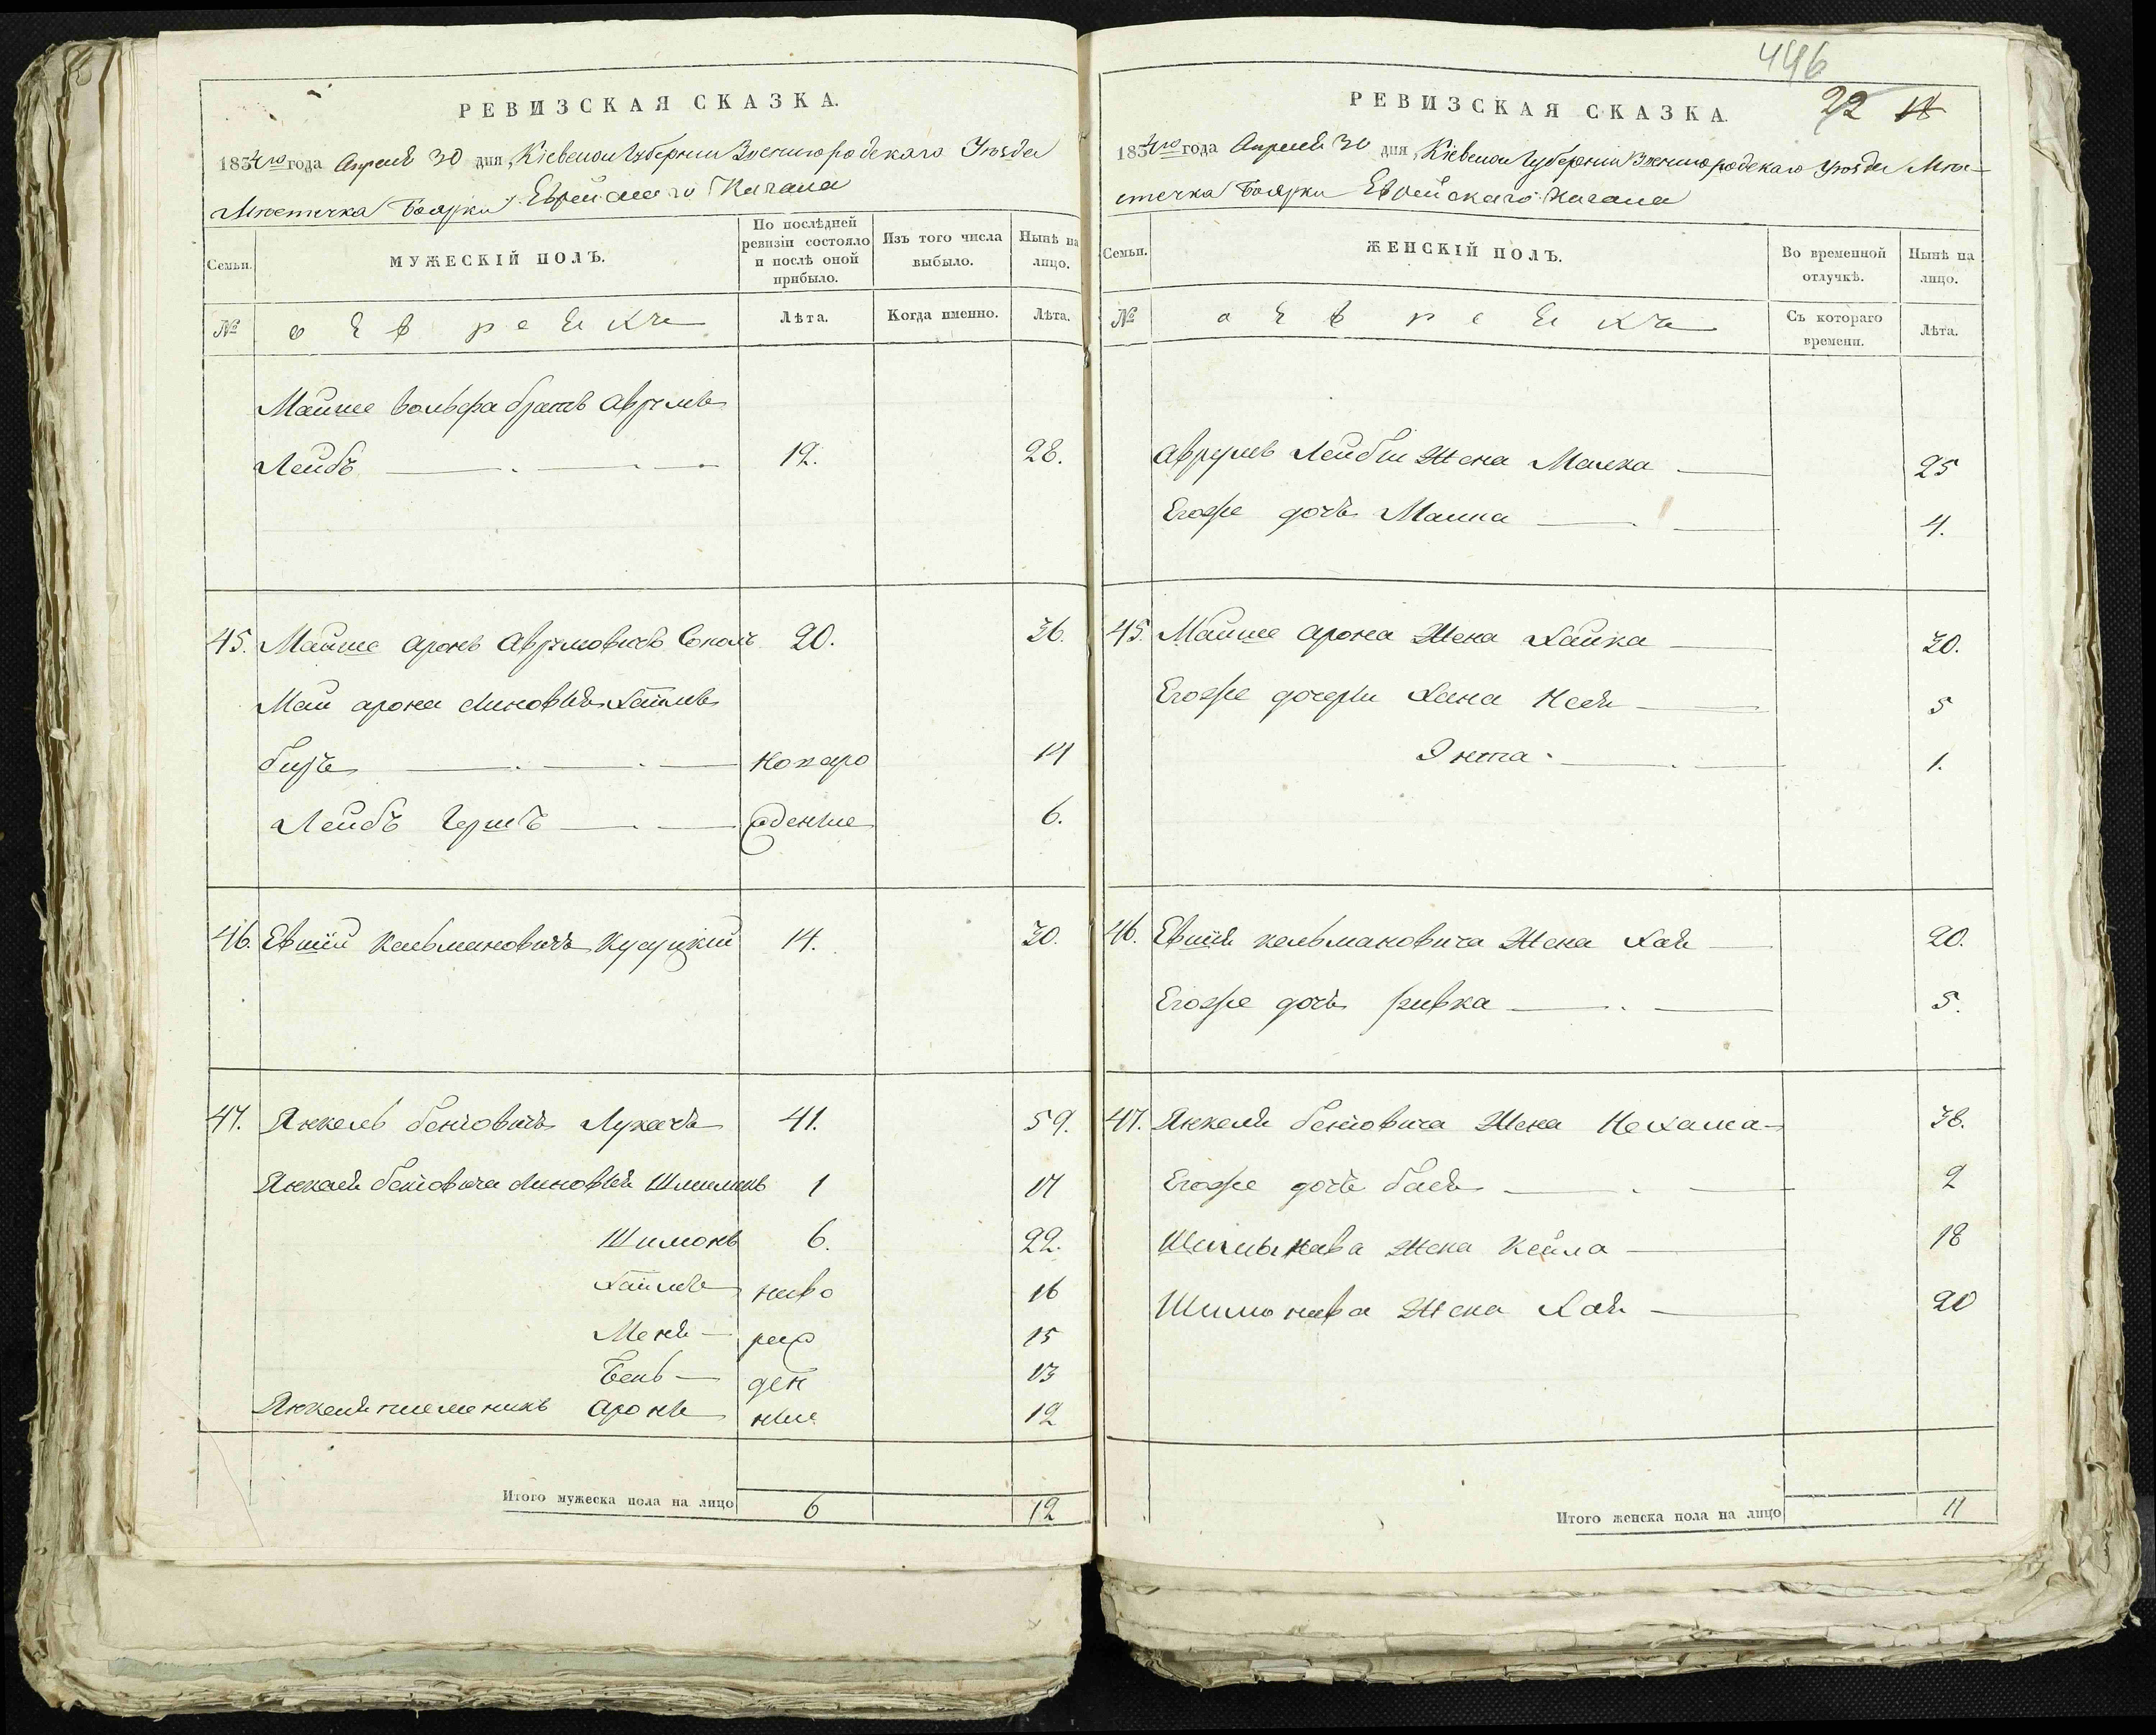 РЕВИЗСКАЯ СКАЗКА.
1834го года Апреля 30 дня, Кіевской Губерніи Звенигородскаго Уѣзда
Мѣстечка Боярки Еврейскаго Кагала
Семьи.
МУЖЕСКІЙ ПОЛЪ.
По послѣдней ревизіи состояло и послѣ оной прибыло.
Изъ того числа выбыло.
Нынѣ на лицо.
№
о Евреяхъ
Лѣта.
Когда именно.
Лѣта.
Майше Вольфа братъ Аврумъ
Лейбъ 12. 28.
45. Майше Аронъ Аврумовичъ Соколъ 20. 36.
Май Арона сыновья Хаимъ
беръ новаро 14
Лейбъ Гершъ жденные 6.
46. Евшій Кальмановичъ 14. 30.
47. Янкель Бенiовичъ Лукачъ 41. 59.
Янкеля Бенiовича сыновья 1 17
Шимонъ 6. 22.
Хаимъ ново 16
Меня раж 15
Бень ден 13
Янкеля племеникъ Аронъ ные 12
Итого мужеска пола на лицо 6 12
446
22 14
РЕВИЗСКАЯ СКАЗКА.
1834го года Апреля 30 дня, Кіевской Губерніи Звенигородскаго Уѣзда Мѣ-
стечка Боярки Еврейскаго Кагала
Семьи.
ЖЕНСКІЙ ПОЛЪ.
Во временной отлучкѣ.
Нынѣ на лицо.
№
о Евреяхъ
Съ котораго времени.
Лѣта.
Аврумъ Лейбы Жена Малка 25
Егоже дочь Маика 4.
45. Майше Арона Жена Хайка 30.
Егоже дочери Хана Неся 5
Энта 1.
46. Евшія Кальмановича Жена Хая 20.
Егоже дочь Ривка 5.
47. Янкеля Бенiовича Жена Нехама 38.
Егоже дочь Бася 2
Жена Кейла 18
Шимонава Жена Хая 20
Итого женска пола на лицо 11